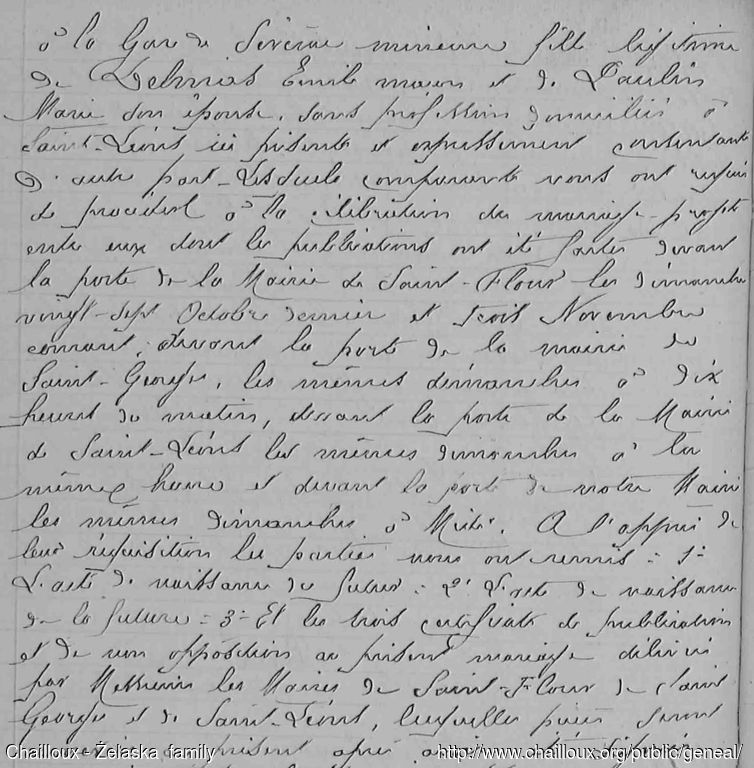 à la Gare de Séverac mineure fille légitime
de Delmas Emile maçon et de Paulin
Marie son épouse, sans profession domiciliés à
Saint-Léons ici présents et expressément consentants
D'autre part - Lesquels comparants nous ont requis
de procéder à la célébration du mariage projeté
entre eux dont les publications ont été faites devant
la porte de la Mairie de Saint-Flour les dimanche
vingt-sept Octobre dernier et trois Novembre
courant, devant la porte de la mairie de
Saint-Georges, les mêmes dimanches à dix
heures du matin, devant la porte de la Mairie
de Saint-Léons les mêmes dimanches à la
même heure et devant la porte de notre Mairie
les mêmes dimanches à Midi. A l'appui de
leur réquisition les parties nous ont remis : 1°
L'acte de naissance du futur : 2° L'acte de naissance
de la future : 3° Et les trois certificats de publication
et de non opposition au présent mariage délivrés
par Messieurs les Maires de Saint-Flour de Saint
Georges et de Saint-Léons, lesquelles pièces seront
au présent après avoir été
Chailloux - Żelaska family
http://www.chailloux.org/public/geneal/